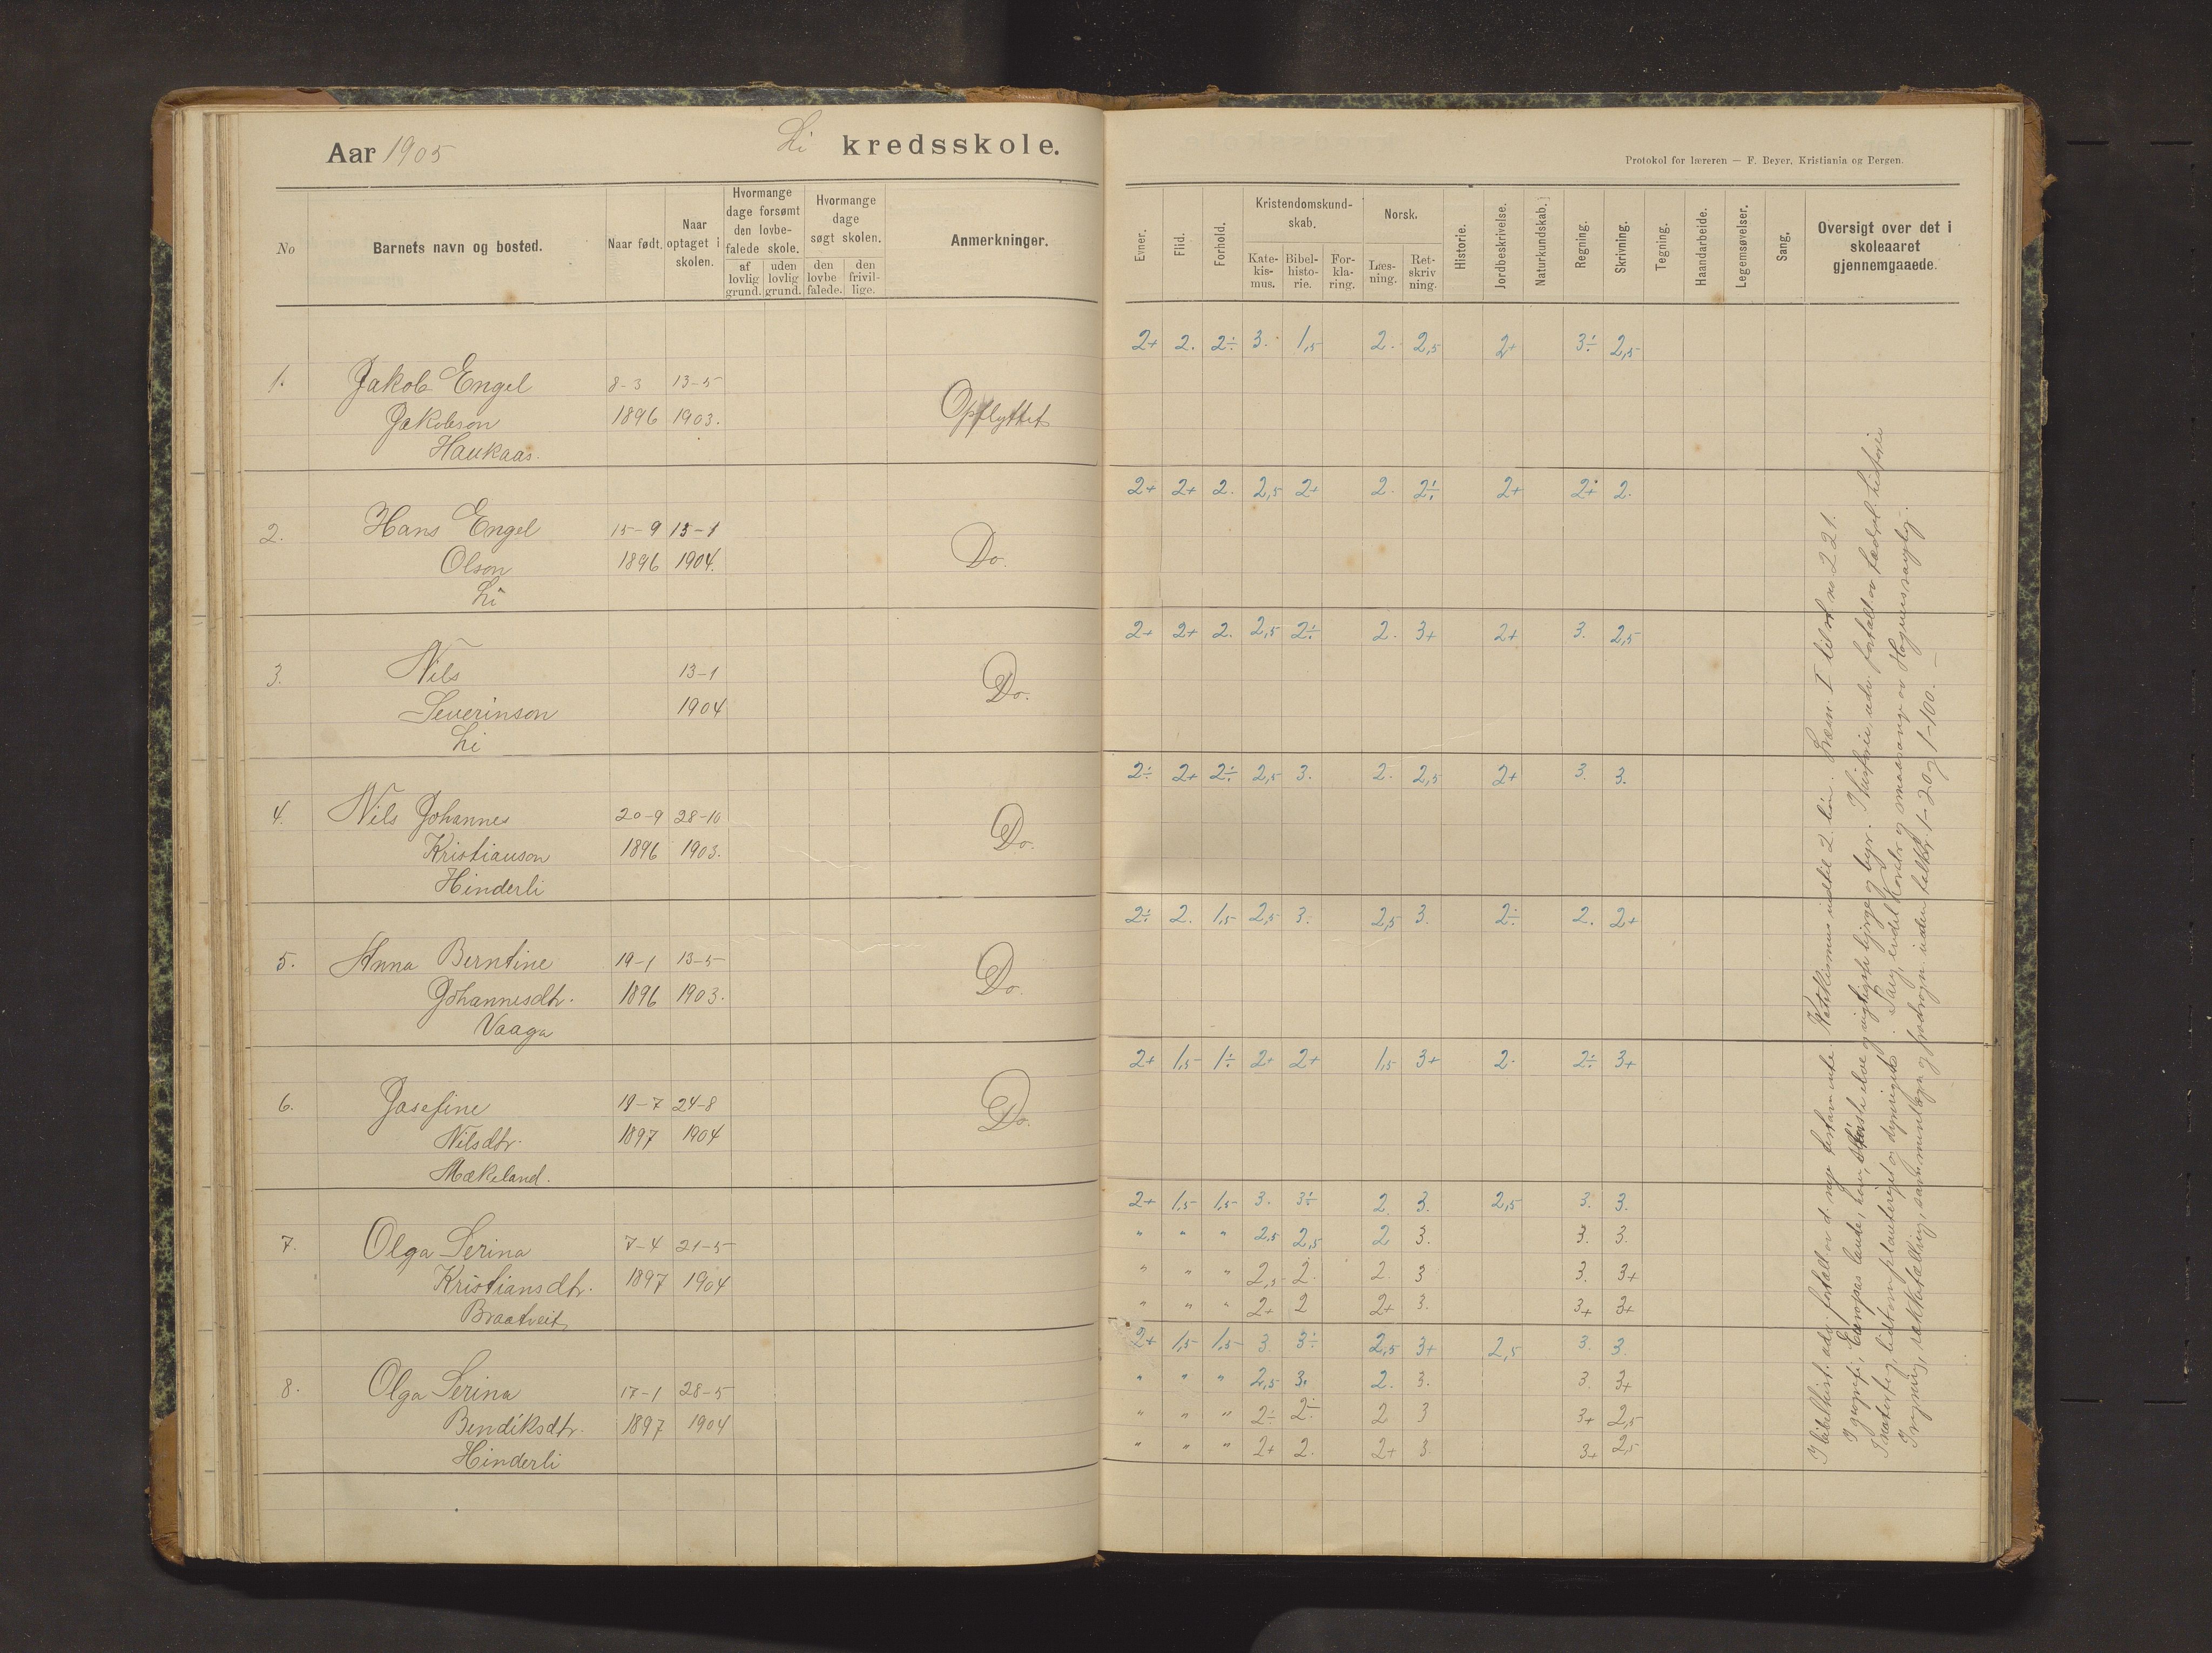 Aar 1905
Li kredsskole.
No
Barnets navn og bosted.
Naar født.
Naar optaget i skolen.
Hvormange dage forsømt den lovbefalede skole.
af lovlig grund.
uden lovlig grund.
Hvormange dage søgt skolen.
den lovbefalede.
den frivillige.
Anmerkninger.
1. Jakob Engel 8-3 13-5
Jakobson 1896 1903. Opflyttet
Haukaas.
2. Hans Engel 15-9 13-1
Olson 1896 1904. Do.
Li
3. Nils 13-1 Do.
Severinson 1904
Li
4. Nils Johannes 20-9 28-10
Kristianson 1896 1903. Do.
Hinderli
5. Anna Berntine 19-1 13-5
Johannesdtr. 1896 1903. Do.
Vaaga
6. Josefine 19-7 24-8 Do.
Nilsdtr. 1897 1904
Mækeland.
7. Olga Serina 7-4 21-5
Kristiansdtr. 1897 1904
Braatveit
8. Olga Serina 17-1 28-5
Bendiksdtr. 1897 1904
Hinderli
Protokol for læreren — F. Beyer, Kristiania og Bergen.
Evner.
Flid.
Forhold.
Kristendomskundskab.
Katekismus.
Bibelhistorie.
Forklaring.
Norsk.
Læsning.
Retskrivning.
Historie.
Jordbeskrivelse.
Naturkundskab.
Regning.
Skrivning.
Tegning.
Haandarbeide.
Legemsøvelser.
Sang.
Oversigt over det i skoleaaret gjennemgaaede.
2+ 2. 2÷ 3. 1,5 2. 2,5 2+ 3÷ 2,5
2+ 2+ 2. 2,5 2+ 2. 2÷ 2+ 2+ 2.
2+ 2+ 2. 2,5 2÷ 2. 3+ 2+ 3. 2,5
2÷ 2+ 2÷ 2,5 3. 2. 2,5 2+ 3. 3.
2÷ 2. 1,5 2,5 3. 2,5 3. 2÷ 2. 2+
2+ 1,5 1÷ 2+ 2+ 1,5 3+ 2. 2÷ 3+
2+ 1,5 1,5 3. 3÷ 2. 3. 2,5 3. 3.
" " " 2,5 2,5 2 3. 3. 3.
" " " 2,5 2. 2 3 3. 3+
" " " 2+ 2 2+ 3. 3+ 3+
2+ 1,5 1,5 3 3÷ 2,5 3+ 2,5 3. 3.
" " " 2,5 3. 2. 3. 3. 3+
" " " 2÷ 2÷ 2 3 3+ 2,5
" " " 2+ 2. 2+ 3. 3+ 2,5
I bibelhist. adv. fortalt ov d. nye testamente. Katekismus indtil 2 lein. Læsn. I til no 221.
I geografi, Europas lande, største elve og vigtigste bjerge og byr. I historie adv. fortalt ov fædrel. historie
I naturfag, lidt om planteriget og dyreriget.
I regning, rækketælling, sammenlægn og fradragn inden talkr. 1-20 og 1-100.